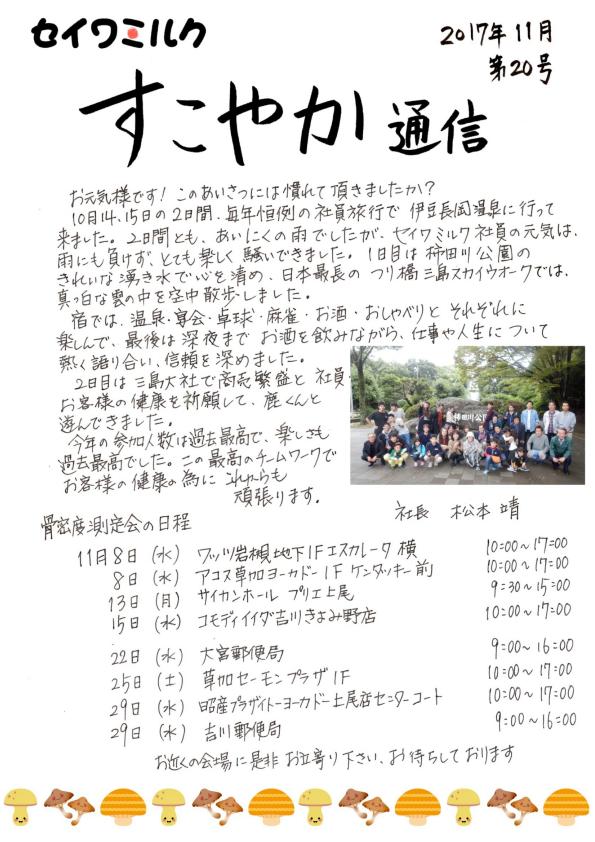 セイワミルク
2017年11月
第20号
すこやか通信
お元気様です！このあいさつには慣れて頂きましたか？
10月14、15日の2日間、毎年恒例の社員旅行で伊豆長岡温泉に行って
来ました。2日間とも、あいにくの雨でしたが、セイワミルク社員の元気は、
雨にも負けず、とても楽しく騒いできました。1日目は柿田川公園の
きれいな湧き水で心を清め、日本最長のつり橋三島スカイウオークでは、
真っ白な雲の中を空中散歩しました。
宿では、温泉・宴会・卓球・麻雀・お酒・おしゃべりとそれぞれに
楽しんで、最後は深夜までお酒を飲みながら、仕事や人生について
熱く語り合い、信頼を深めました。
2日目は三島大社で商売繁盛と社員
お客様の健康を祈願して、鹿くんと
遊んできました。
今年の参加人数は過去最高で、楽しさも
過去最高でした。この最高のチームワークで
お客様の健康の為にこれからも
頑張ります。
柿田川公園
社長 松本 靖
骨密度測定会の日程
11月8日（水）ワッツ岩槻地下1Fエスカレータ横 10:00〜17:00
8日（水）アコス草加ヨーカドー1Fケンタッキー前 10:00〜17:00
13日（月）サイカンホール プリエ上尾 9:30〜15:00
15日（水）コモディイイダ吉川きよみ野店 10:00〜17:00
22日（水）大宮郵便局 9:00〜16:00
25日（土）草加セーモンプラザ1F 10:00〜17:00
29日（水）昭産プラザイトーヨーカドー上尾店センターコート 10:00〜17:00
29日（水）吉川郵便局 9:00〜16:00
お近くの会場に是非お立寄り下さい、お待ちしております